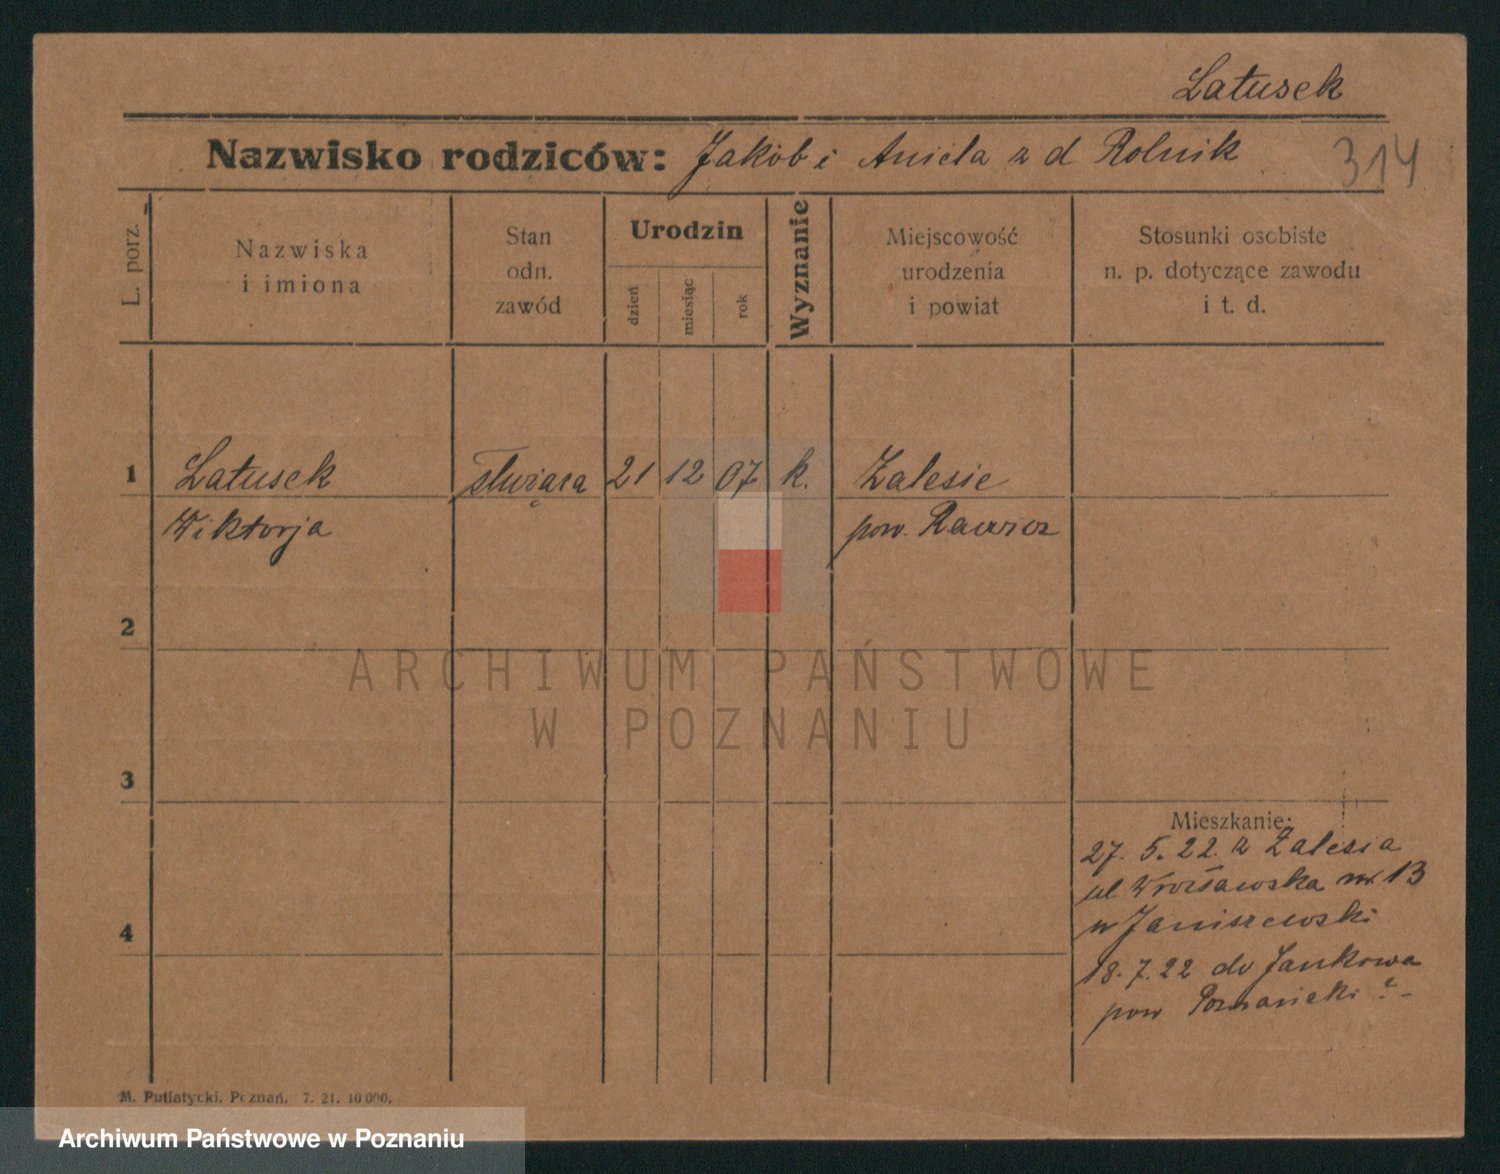 Latusek
Nazwisko rodziców: Jakób i Aniela z d Rolnik
314
L. porz.
Nazwiska
i imiona
Stan
odn.
zawód
Urodzin
dzień
miesiąc
rok
Wyznanie
Miejscowość
urodzenia
i powiat
Stosunki osobiste
n. p. dotyczące zawodu
i t. d.
1 Latusek służąca 21 12 07 k. Zalesie
Wiktorja pow. Rawicz
2
ARCHIWUM PAŃSTWOWE
W POZNANIU
3
Mieszkanie:
27. 5. 22. z Zalesia
ul Wrocławska nr. 13
4
w Janiszewski
18. 7. 22 do Jankowa
pow
M. Putiatycki, Poznań. 7. 21. 10 000.
Archiwum Państwowe w Poznaniu